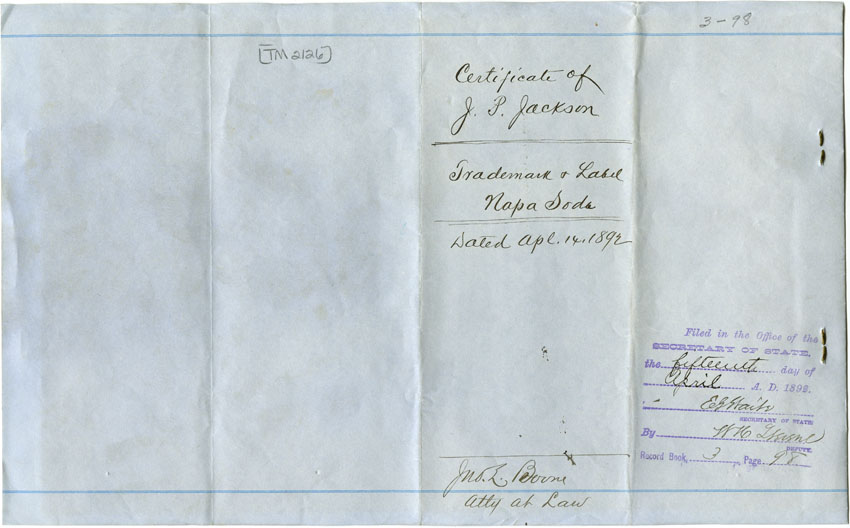 3-98
[TM 2126]
Certificate of
J. P. Jackson
Trademark & Label
Napa Soda
Dated Apl. 14. 1892
Jno. L. Boone
Atty at Law
Filed in the Office of the
SECRETARY OF STATE,
the fifteenth day of
April A. D. 1892.
E G Waite
SECRETARY OF STATE
By W H
DEPUTY.
Record Book, 3 Page 98